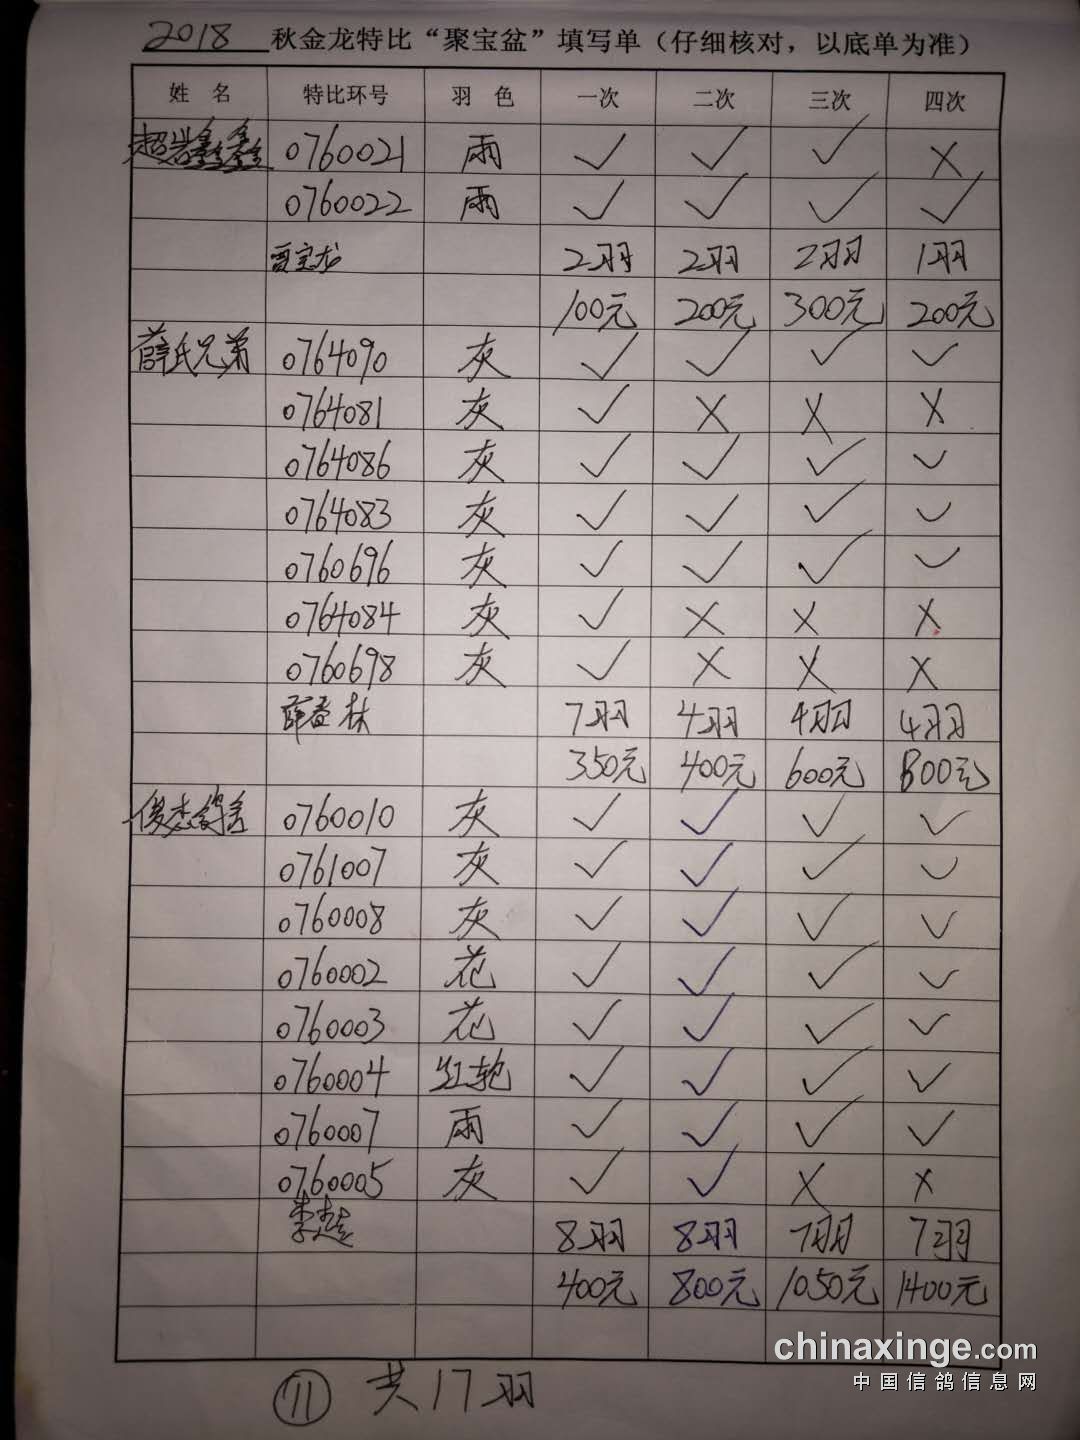 2018 秋金龙特比“聚宝盆”填写单（仔细核对，以底单为准）
姓 名 特比环号 羽 色 一次 二次 三次 四次
超岩鑫鑫 0760021 雨 ✓ ✓ ✓ ✗
0760022 雨 ✓ ✓ ✓ ✓
贾宝龙 2羽 2羽 2羽 1羽
100元 200元 300元 200元
薛氏兄弟 0764090 灰 ✓ ✓ ✓ ✓
0764081 灰 ✓ ✗ ✗ ✗
0764086 灰 ✓ ✓ ✓ ✓
0764083 灰 ✓ ✓ ✓ ✓
0760696 灰 ✓ ✓ ✓ ✓
0764084 灰 ✓ ✗ ✗ ✗
0760698 灰 ✓ ✗ ✗ ✗
薛春林 7羽 4羽 4羽 4羽
350元 400元 600元 800元
俊杰鸽舍 0760010 灰 ✓ ✓ ✓ ✓
0761007 灰 ✓ ✓ ✓ ✓
0760008 灰 ✓ ✓ ✓ ✓
0760002 花 ✓ ✓ ✓ ✓
0760003 花 ✓ ✓ ✓ ✓
0760004 红轮 ✓ ✓ ✓ ✓
0760007 雨 ✓ ✓ ✓ ✓
0760005 灰 ✓ ✓ ✗ ✗
李超 8羽 8羽 7羽 7羽
400元 800元 1050元 1400元
⑪ 共17羽
chinaxinge.com
中国信鸽信息网